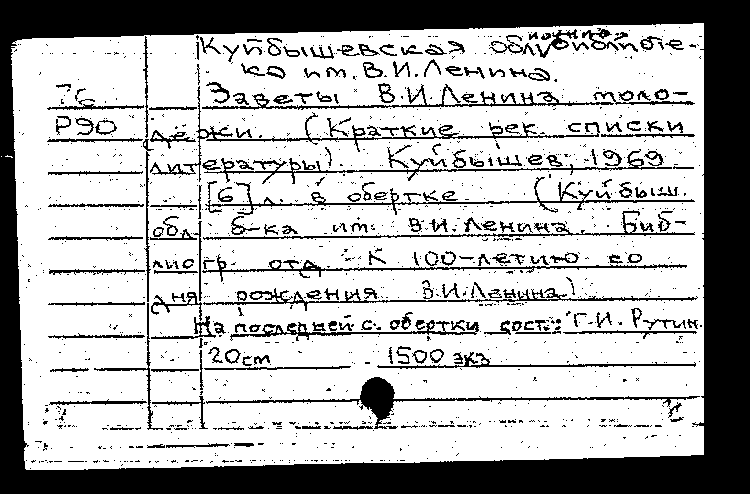 Куйбышевская обл. библиоте-
ка им. В.И.Ленина.
76 Заветы В.И.Ленина моло-
Р90 дежи. (Краткие рек. списки
литературы). Куйбышев, 1969
[6] л. в обертке (Куйбыш.
обл. б-ка им. В.И.Ленина. Биб-
лиогр. отд - К 100-летию со
дня рождения В.И.Ленина)
На последней с. обертки сост.: Г.И. Рутин.
20см 1500 экз